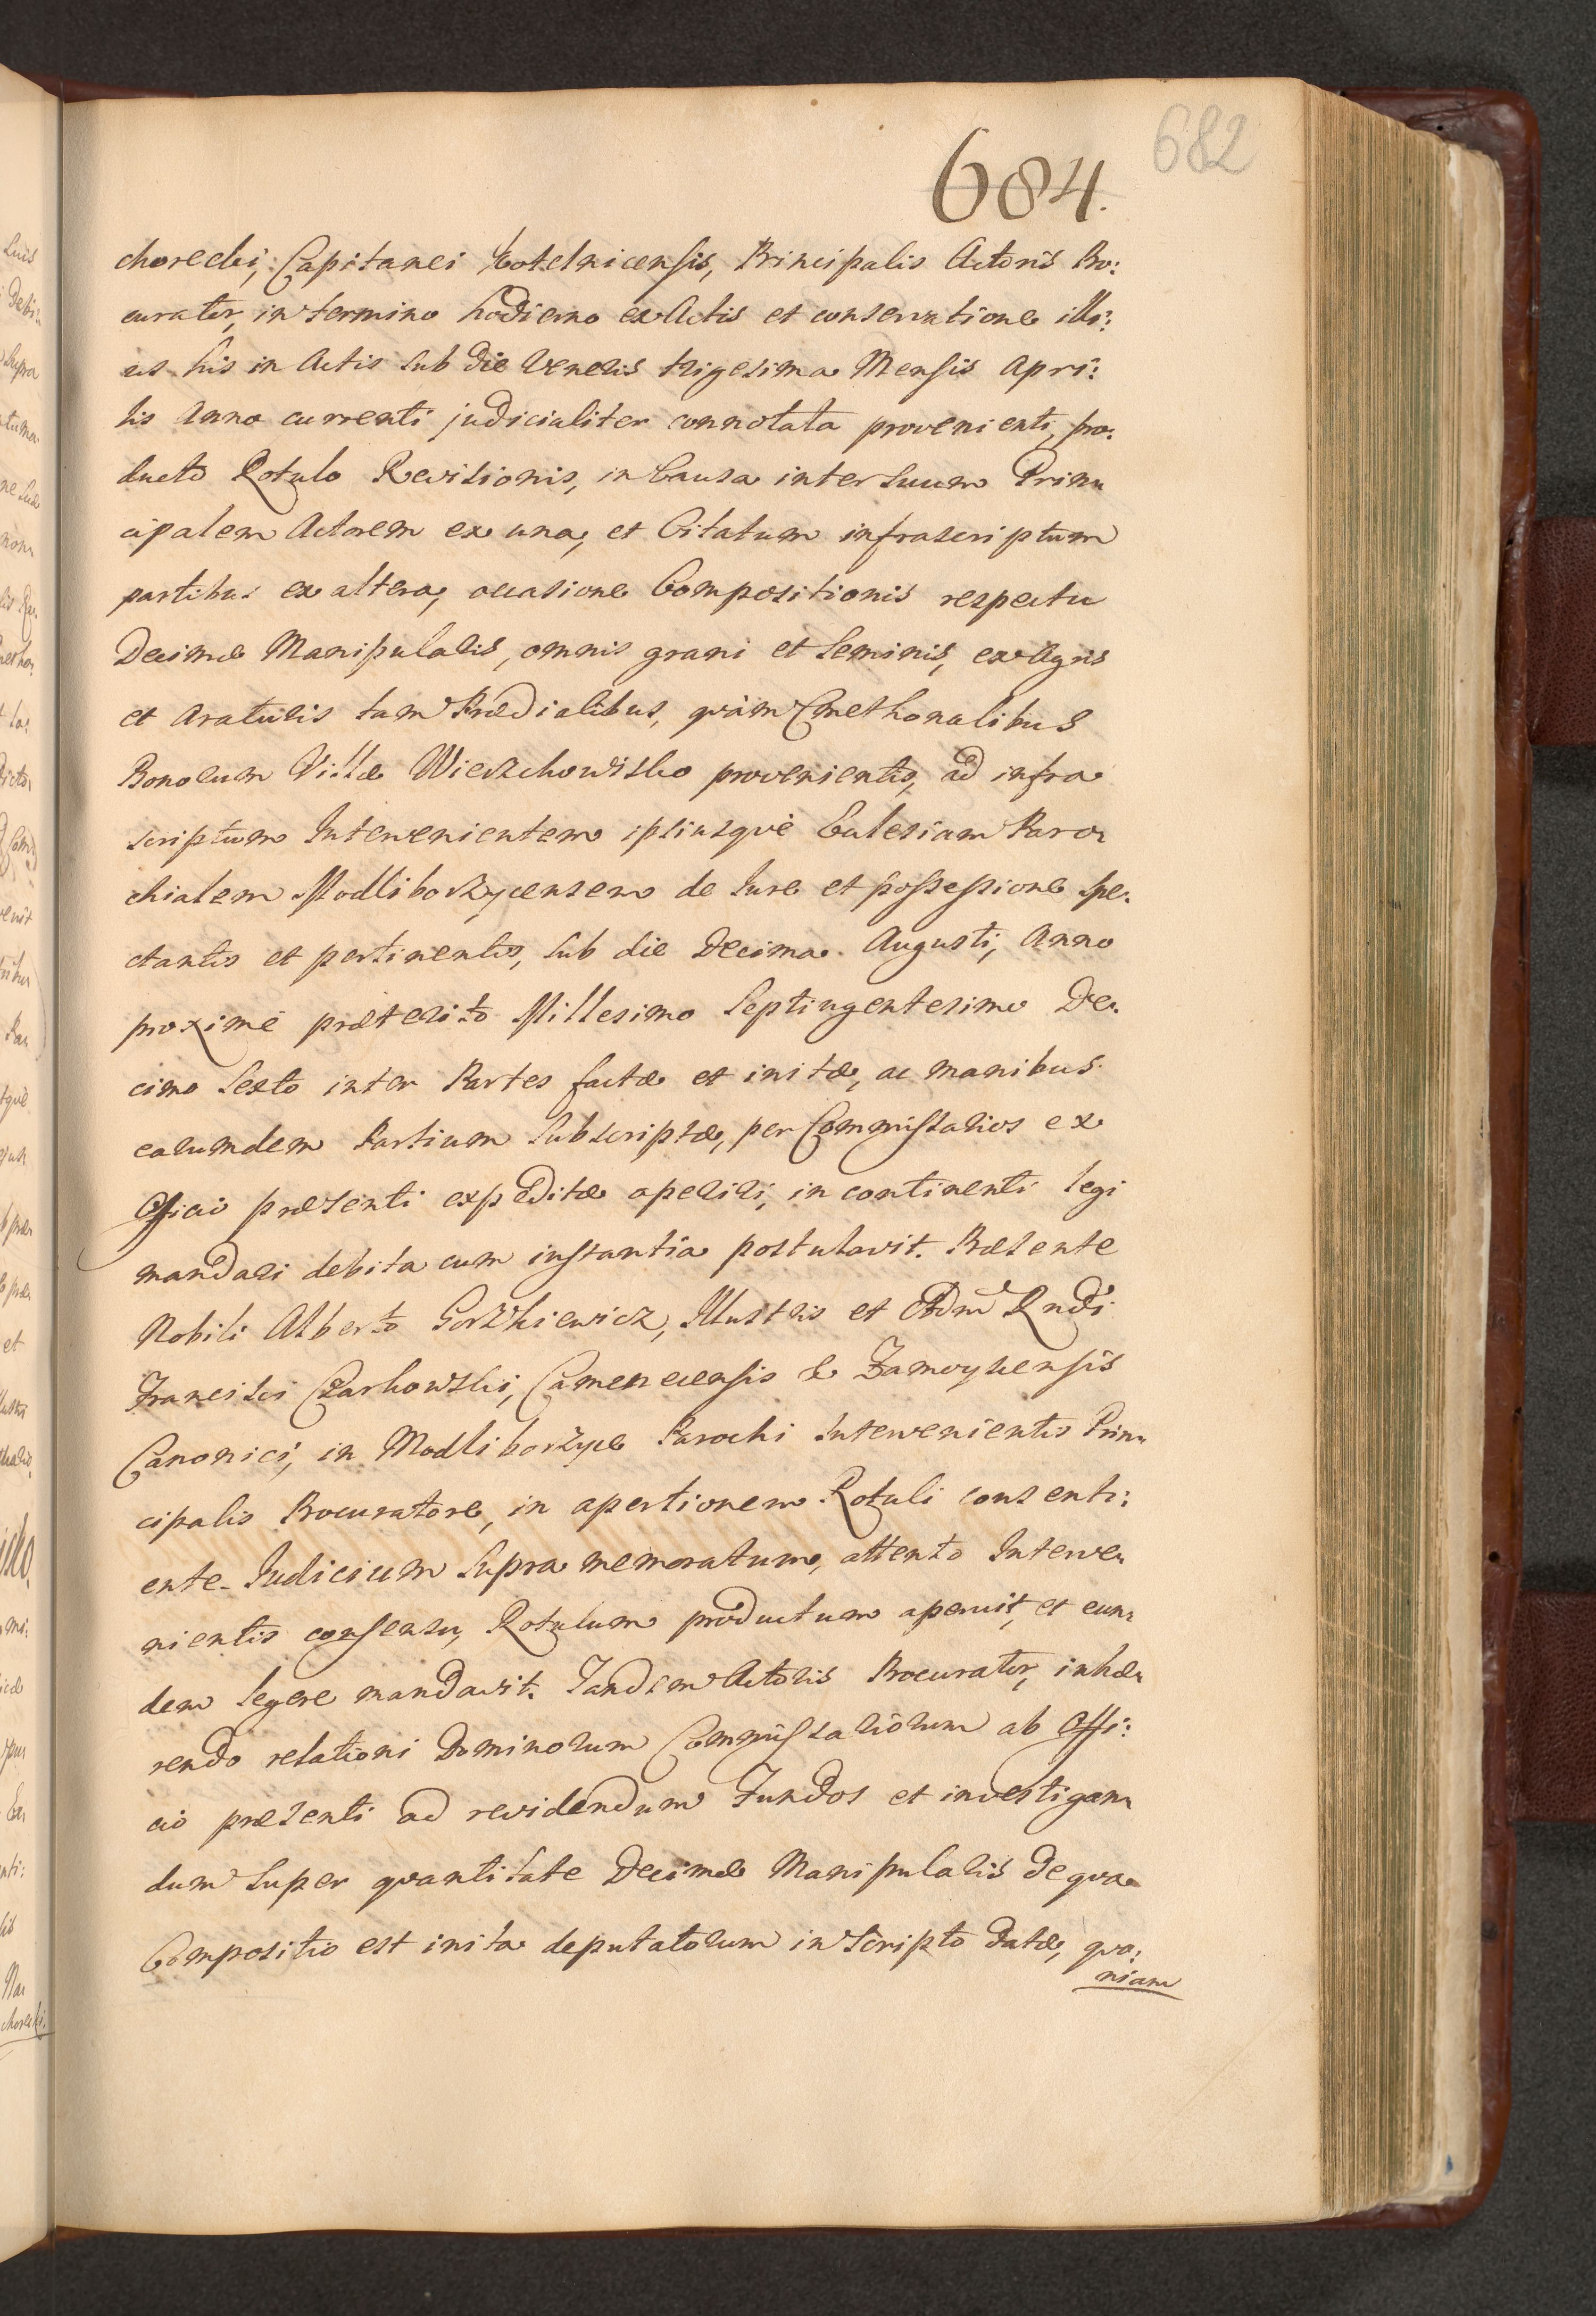 682
684.
chorecki, Capitanei Kotelnicensis, Principalis Actoris Pro:
curator, in termino hodierno ex Actis et conservatione illi:
us his in Actis sub die Veneris trigesima Mensis Apri:
lis Anno currenti judicialiter connotata provenienti, pro:
ducto Rotulo Revisionis, in Causa inter suum Prin
cipalem Actorem ex una, et Citatum infrascriptum
partibus ex altera, occasione Compositionis respectu
Decimæ Manipularis, omnis grani et seminis, ex Agris
et Araturis tam Prædialibus, quàm Cmethonalibus
Bonorum Villæ Wierzchowisko provenientis, ad infra
scriptum Intervenientem ipsiusquè Ecclesiam Paro
chialem Modliborzycensem de Iure et possessione spe
ctantis et pertinentis, sub die Decima Augusti, Anno
proximè præterito Millesimo Septingentesimo De
cimo Sexto inter Partes factæ et initæ, ac manibus
earumdem Partium subscriptæ, per Commissarios ex
Officio præsenti expeditæ aperiri, in continenti legi
mandari debita cum instantia postulavit. Præsente
Nobili Alberto Gorzkiewicz, Illustris et Adm Rndi
Francisci Czarkowski, Camenecensis & Zamoyscensis
Canonici, in Modliborzyce Parochi Intervenientis Prin
cipalis Procuratore, in apertionem Rotuli consenti:
ente. Iudicium supra memoratum, attento Interve
nientis consensu, Rotulum productum aperuit, et eun
dem legere mandavit. Tandem Actoris Procurator, inhæ
rendo relationi Dominorum Commissariorum ab Offi:
cio præsenti ad revidendum Fundos et investigan
dum super quantitate Decimæ Manipularis de qua
Compositio est inita deputatorum in scripto datæ, quo:
niam